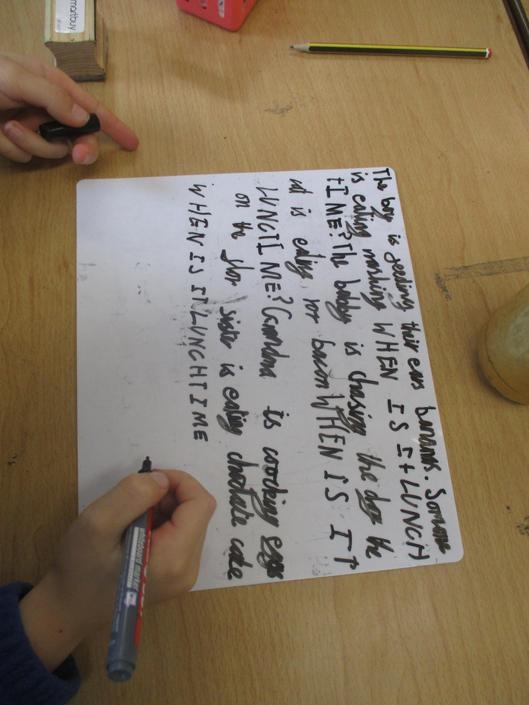 The boy is feeding their ears bananas. Someone
is eating nothing WHEN IS It LUNCH
tIME? The baby is chasing the dog the
is eating bacon WHEN IS IT
LUNCTIME? Grandma is cooking eggs
on the sister is eating cake
WHEN IS IT LUNCHTIME